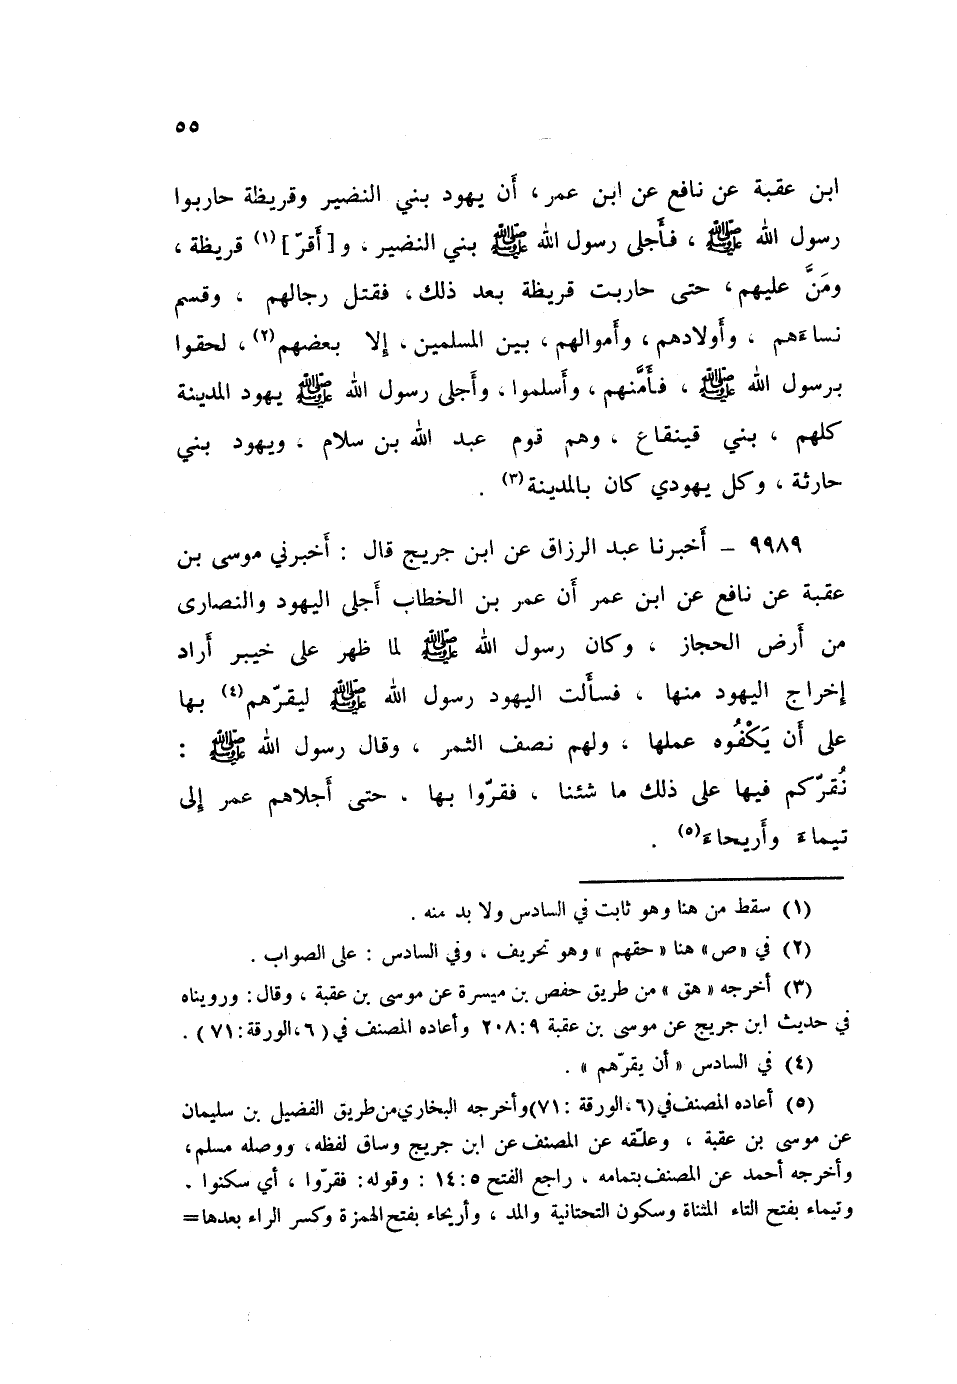 ٥٥
ابن عقبة عن نافع عن ابن عمر، أن يهود بني النضير وقريظة حاربوا
رسول الله ﷺ ، فأجلى رسول الله ﷺ بني النضير ، و[أقرّ](١) قريظة ،
ومَنَّ عليهم، حتى حاربت قريظة بعد ذلك، فقتل رجالهم ، وقسم
نساءَهم ، وأولادهم، وأموالهم، بين المسلمين، إلا بعضهم(٢)، لحقوا
برسول الله ﷺ ، فأَمَّنهم، وأسلموا، وأجلى رسول الله ﷺ يهود المدينة
كلهم ، بني قينقاع ، وهم قوم عبد الله بن سلام ، ويهود بني
حارثة ، وكل يهودي كان بالمدينة(٣) .
٩٩٨٩ – أخبرنا عبد الرزاق عن ابن جريج قال : أخبرني موسى بن
عقبة عن نافع عن ابن عمر أن عمر بن الخطاب أجلى اليهود والنصارى
من أرض الحجاز ، وكان رسول الله ﷺ لما ظهر على خيبر أراد
إخراج اليهود منها ، فسألت اليهود رسول الله ﷺ ليقرّهم(٤) بها
على أن يَكْفُوه عملها ، ولهم نصف الثمر ، وقال رسول الله ﷺ :
نُقرّكم فيها على ذلك ما شئنا ، فقرّوا بها . حتى أجلاهم عمر إلى
تيماءَ وأريحاءَ(٥) .
(١) سقط من هنا وهو ثابت في السادس ولا بد منه .
(٢) في «ص» هنا «حقهم» وهو تحريف ، وفي السادس : على الصواب .
(٣) أخرجه «هق» من طريق حفص بن ميسرة عن موسى بن عقبة ، وقال: ورويناه
في حديث ابن جريج عن موسى بن عقبة ٩:‏٢٠٨ وأعاده المصنف في (٦، الورقة: ٧١) .
(٤) في السادس «أن يقرّهم» .
(٥) أعاده المصنف في (٦، الورقة :٧١) وأخرجه البخاري من طريق الفضيل بن سليمان
عن موسى بن عقبة ، وعلّقه عن المصنف عن ابن جريج وساق لفظه، ووصله مسلم،
وأخرجه أحمد عن المصنف بتمامه . راجع الفتح ٥:‏١٤ : وقوله: فقرّوا ، أي سكنوا .
وتيماء بفتح التاء المثناة وسكون التحتانية والمد ، وأريحاء بفتح الهمزة وكسر الراء بعدها=